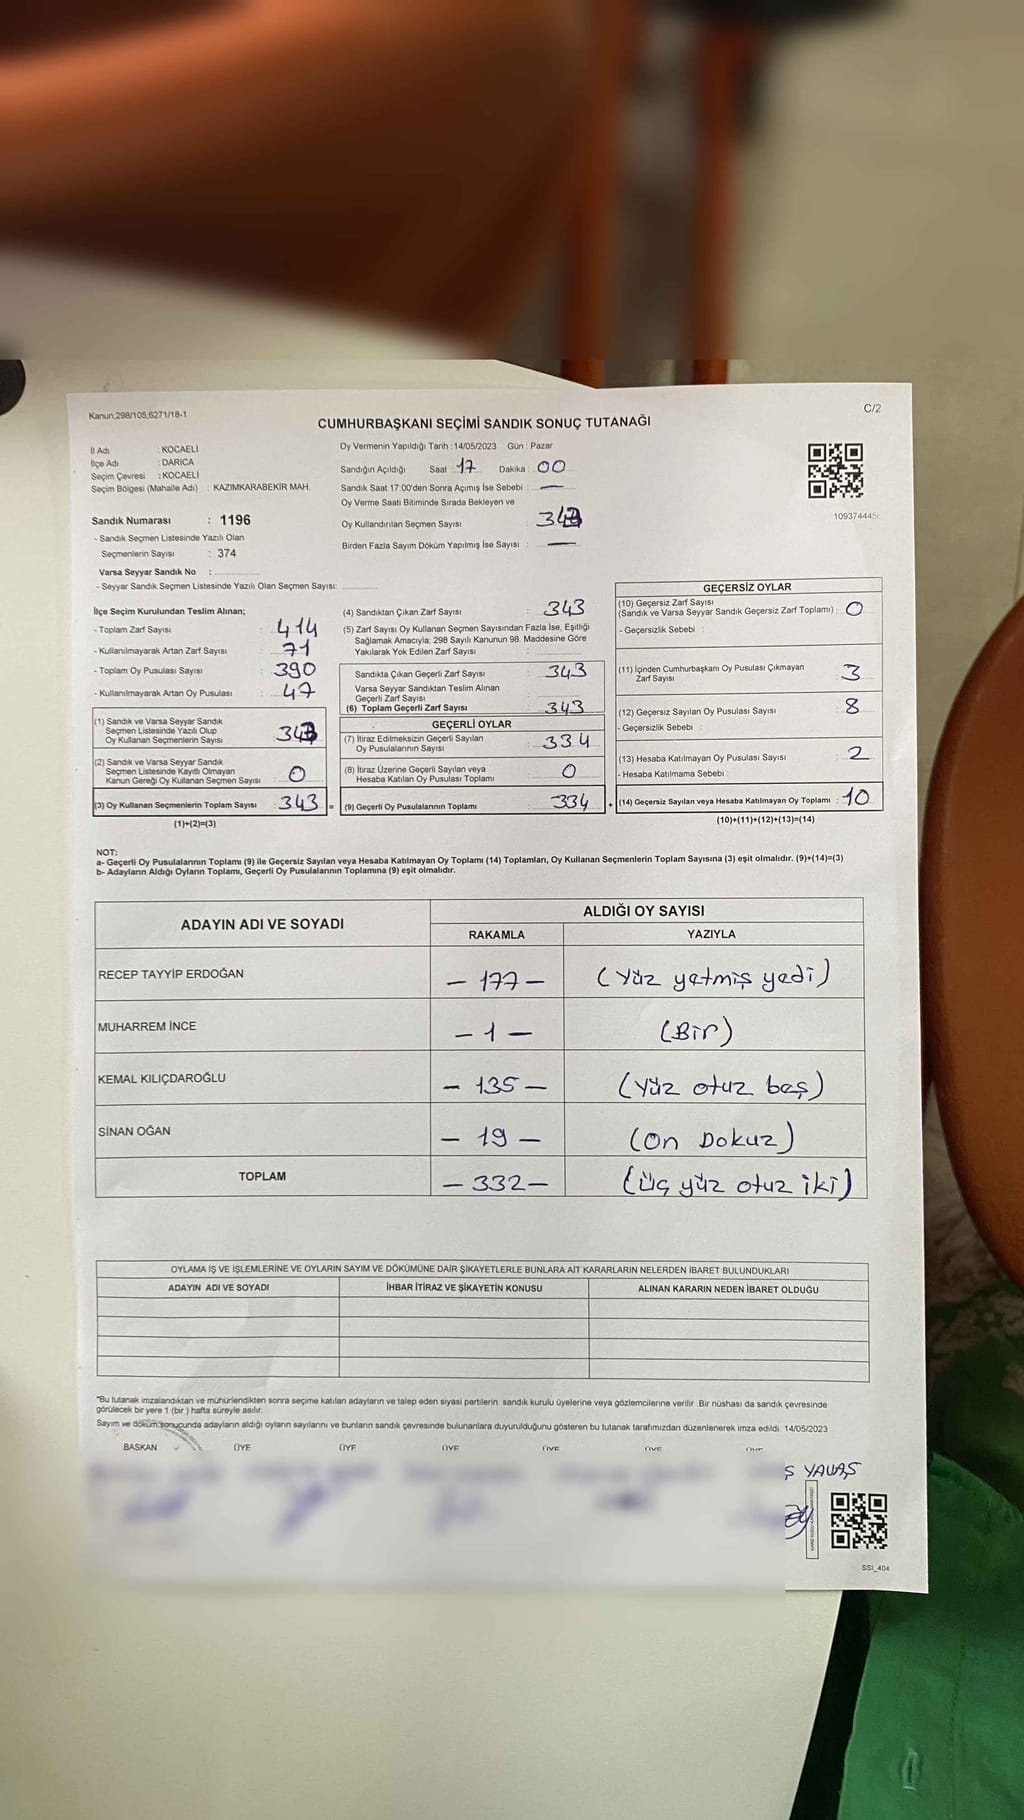 Kanun;298/105;6271/18-1
C/2
CUMHURBAŞKANI SEÇİMİ SANDIK SONUÇ TUTANAĞI
İl Adı : KOCAELİ
İlçe Adı : DARICA
Seçim Çevresi : KOCAELİ
Seçim Bölgesi (Mahalle Adı) : KAZIMKARABEKİR MAH.
Sandık Numarası : 1196
- Sandık Seçmen Listesinde Yazılı Olan
Seçmenlerin Sayısı : 374
Varsa Seyyar Sandık No :
- Seyyar Sandık Seçmen Listesinde Yazılı Olan Seçmen Sayısı:
Oy Vermenin Yapıldığı Tarih : 14/05/2023 Gün : Pazar
Sandığın Açıldığı Saat 17 Dakika : 00
Sandık Saat 17:00'den Sonra Açımış İse Sebebi : —
Oy Verme Saati Bitiminde Sırada Bekleyen ve
Oy Kullandırılan Seçmen Sayısı : 343
Birden Fazla Sayım Döküm Yapılmış İse Sayısı : —
109374445
İlçe Seçim Kurulundan Teslim Alınan;
- Toplam Zarf Sayısı : 414
- Kullanılmayarak Artan Zarf Sayısı : 71
- Toplam Oy Pusulası Sayısı : 390
- Kullanılmayarak Artan Oy Pusulası : 47
(1) Sandık ve Varsa Seyyar Sandık
Seçmen Listesinde Yazılı Olup
Oy Kullanan Seçmenlerin Sayısı : 343
(2) Sandık ve Varsa Seyyar Sandık
Seçmen Listesinde Kayıtlı Olmayan
Kanun Gereği Oy Kullanan Seçmen Sayısı : 0
(3) Oy Kullanan Seçmenlerin Toplam Sayısı : 343 =
(1)+(2)=(3)
(4) Sandıktan Çıkan Zarf Sayısı : 343
(5) Zarf Sayısı Oy Kullanan Seçmen Sayısından Fazla İse, Eşitliği
Sağlamak Amacıyla; 298 Sayılı Kanunun 98. Maddesine Göre
Yakılarak Yok Edilen Zarf Sayısı :
Sandıkta Çıkan Geçerli Zarf Sayısı : 343
Varsa Seyyar Sandıktan Teslim Alınan
Geçerli Zarf Sayısı :
(6) Toplam Geçerli Zarf Sayısı : 343
GEÇERLİ OYLAR
(7) İtiraz Edilmeksizin Geçerli Sayılan
Oy Pusulalarının Sayısı : 334
(8) İtiraz Üzerine Geçerli Sayılan veya
Hesaba Katılan Oy Pusulası Toplamı : 0
(9) Geçerli Oy Pusulalarının Toplamı : 334 +
GEÇERSİZ OYLAR
(10) Geçersiz Zarf Sayısı
(Sandık ve Varsa Seyyar Sandık Geçersiz Zarf Toplamı) : 0
- Geçersizlik Sebebi :
(11) İçinden Cumhurbaşkanı Oy Pusulası Çıkmayan
Zarf Sayısı : 3
(12) Geçersiz Sayılan Oy Pusulası Sayısı : 8
- Geçersizlik Sebebi :
(13) Hesaba Katılmayan Oy Pusulası Sayısı : 2
- Hesaba Katılmama Sebebi :
(14) Geçersiz Sayılan veya Hesaba Katılmayan Oy Toplamı : 10
(10)+(11)+(12)+(13)=(14)
NOT:
a- Geçerli Oy Pusulalarının Toplamı (9) ile Geçersiz Sayılan veya Hesaba Katılmayan Oy Toplamı (14) Toplamları, Oy Kullanan Seçmenlerin Toplam Sayısına (3) eşit olmalıdır. (9)+(14)=(3)
b- Adayların Aldığı Oyların Toplamı, Geçerli Oy Pusulalarının Toplamına (9) eşit olmalıdır.
ADAYIN ADI VE SOYADI
ALDIĞI OY SAYISI
RAKAMLA YAZIYLA
RECEP TAYYİP ERDOĞAN – 177 – (Yüz yetmiş yedi)
MUHARREM İNCE – 1 – (Bir)
KEMAL KILIÇDAROĞLU – 135 – (Yüz otuz beş)
SİNAN OĞAN – 19 – (On Dokuz)
TOPLAM – 332 – (üç yüz otuz iki)
OYLAMA İŞ VE İŞLEMLERİNE VE OYLARIN SAYIM VE DÖKÜMÜNE DAİR ŞİKAYETLERLE BUNLARA AİT KARARLARIN NELERDEN İBARET BULUNDUKLARI
ADAYIN ADI VE SOYADI İHBAR İTİRAZ VE ŞİKAYETİN KONUSU ALINAN KARARIN NEDEN İBARET OLDUĞU
"Bu tutanak imzalandıktan ve mühürlendikten sonra seçime katılan adayların ve talep eden siyasi partilerin sandık kurulu üyelerine veya gözlemcilerine verilir. Bir nüshası da sandık çevresinde
görülecek bir yere 1 (bir ) hafta süreyle asılır.
Sayım ve döküm sonucunda adayların aldığı oyların sayılarını ve bunların sandık çevresinde bulunanlara duyurulduğunu gösteren bu tutanak tarafımızdan düzenlenerek imza edildi. 14/05/2023
BAŞKAN ÜYE ÜYE ÜYE ÜYE ÜYE
Ş YAVAŞ
SSI_404